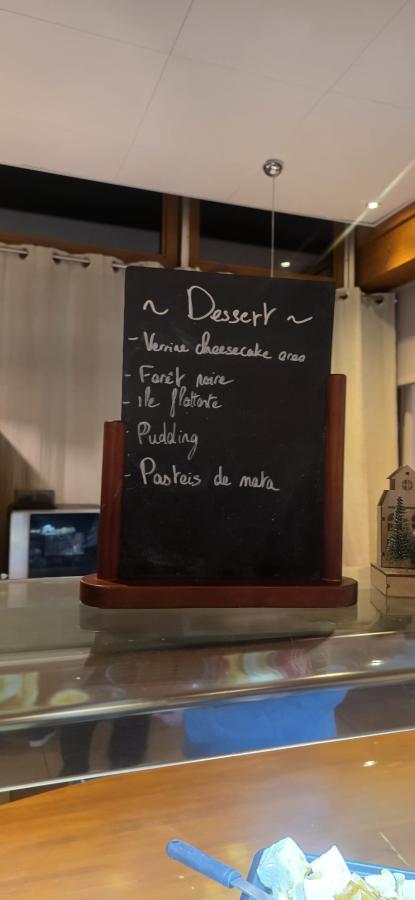 ~ Dessert ~
- Verrine cheesecake oreo
- Forêt noire
- ile flottante
- Pudding
- Pasteis de nata